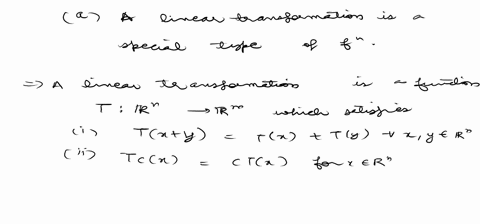 (a) A linear transformation is a
special type of fⁿ.
⇒ A linear transformation is a function
T : ℝⁿ → ℝᵐ which satisfies
(i) T(x+y) = T(x) + T(y) ∀ x, y ∈ ℝⁿ
(ii) Tc(x) = cT(x) for x ∈ ℝⁿ